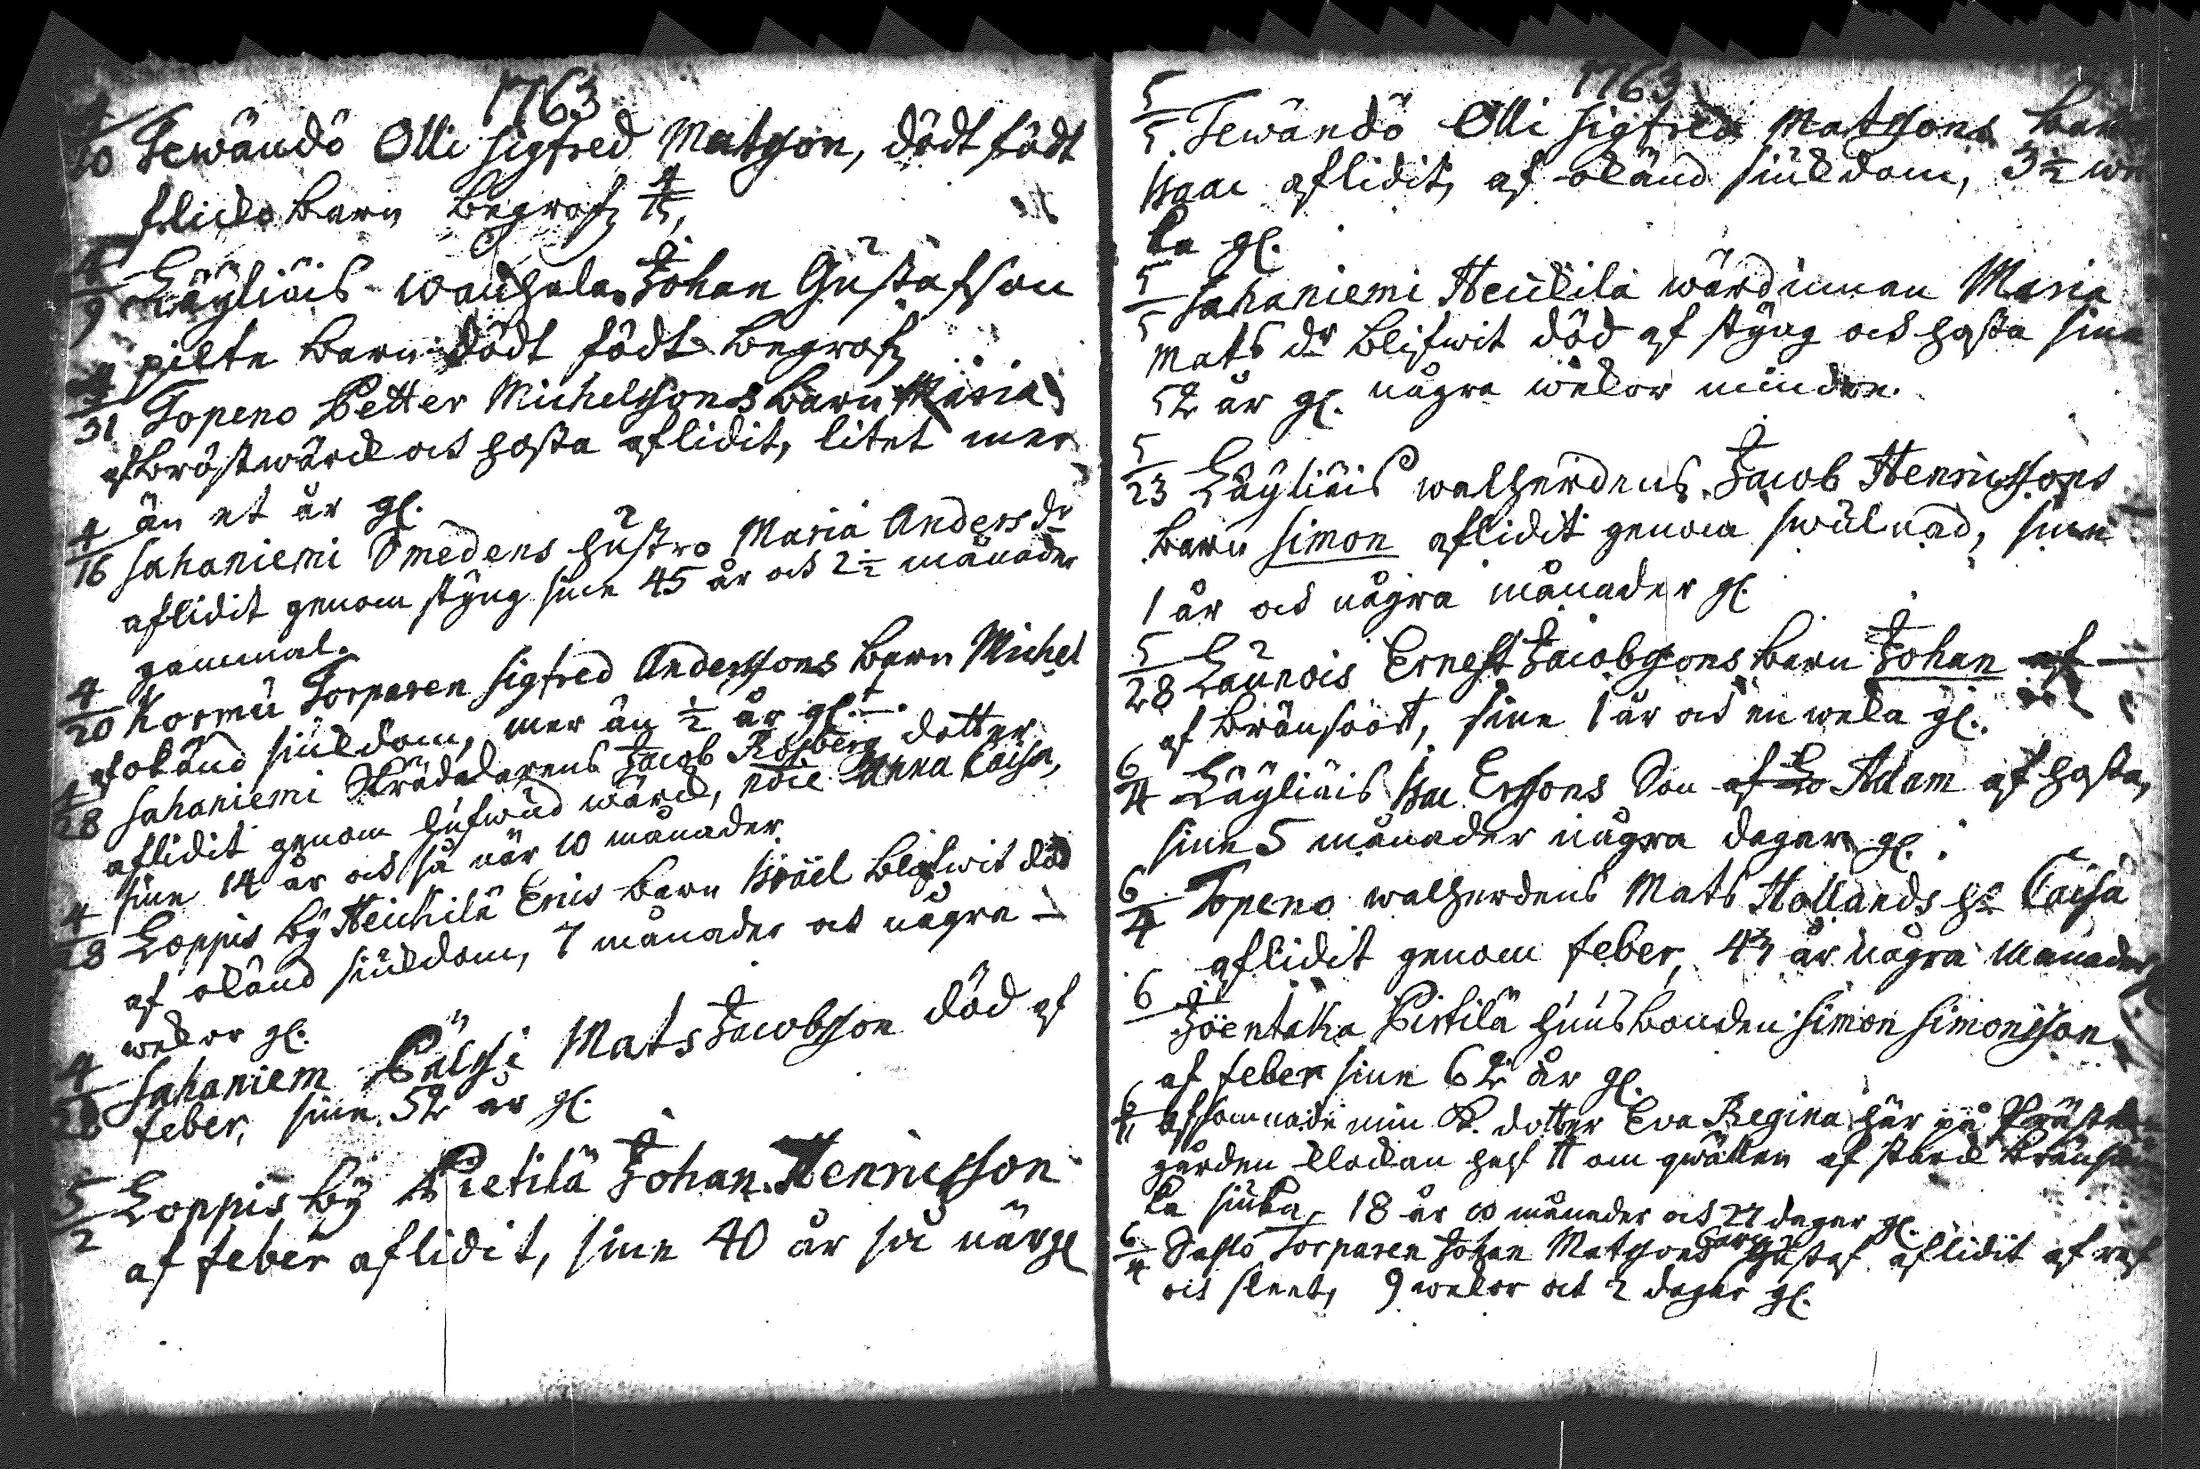 1763
4/10 Tewändö Olli Sigfred Matsson, dödt födt
flicko barn begrafz 4/15,
4/9 Läyliäis wanhala Johan Gustafson
pilte barn dödt födt begrafz
31 Topeno Petter Michelssons barn Maria
af bröstwärck och hosta aflidit, litet mer
än et år gl.
4/16 Sahaniemi Smedens hustro Maria Anders dr
aflidit genom styng sine 45 år och 2½ månader
gammal.
4/20 Kormu Torparen Sigfred Anderssons barn Michel
af okänd siukdom, mer än ½ år gl.
4/28 Sahaniemi Skrädarens Jacob Rosberg dotter
aflidit genom hufwud wärck, Anna Caisa,
sine 14 år och så när 10 månader
4/28 Loppis by Heickilä Erics barn Israel blifwit död
af okänd siukdom, 7 månader och några
wekor gl.
4/28 Sahaniem Pälsi Mats Jacobsson död af
feber, sine 52 år gl.
5/2 Loppis by Pietilä Johan Henricsson
af feber aflidit, sine 40 år så när gl
1763
5/5 Tewändö Olli Sigfred Matssons barn
Isaac aflidit, af okänd siukdom, 3½ we
ka gl.
5/5 Sahaniemi Heickilä wärdinnan Maria
Mats dr blifwit död af styng och hosta sine
52 år gl. några wekor mindre.
5/23 Läyliäis walherdens Jacob Henricssons
barn Simon aflidit genom swulnad, sine
1 år och några månader gl.
5/28 Launois Ernest Jacobssons barn Johan af
af bränsoot, sine 1 år och en weka gl.
6/4 Läyliäis Isac Erssons Son af Lo Adam af hosta,
sine 5 månader några dagar gl.
6/4 Topeno walherdens Mats Hollands h. Caisa
aflidit genom feber, 43 år några månader
6 Joentaka Pietilä husbonden Simon Simonsson
af feber sine 62 år gl.
6/11 afsomnade min K. dotter Eva Regina här på Prästa
gården klockan half 11 om qwällen af starck bränsiu
ka siuka, 18 år 10 månader och 27 dagar gl.
6/4 Sajlo Torparen Johan Matssons barn Gustaf aflidit af ref
och slemb, 9 wekor och 2 dagar gl.